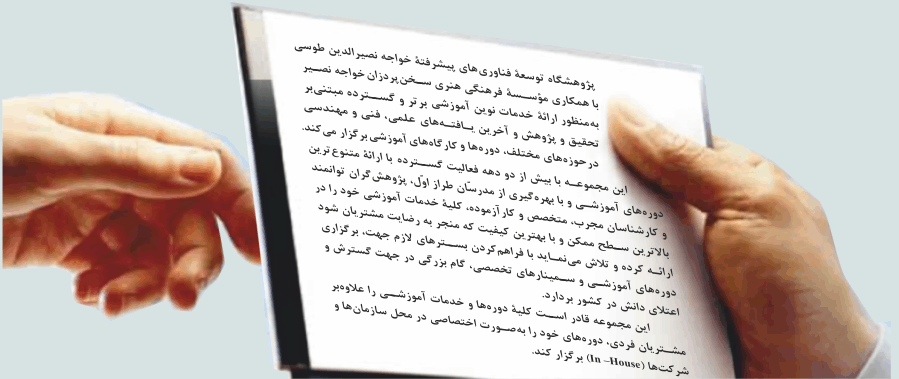 پژوهشگاه توسعهٔ فناوری‌های پیشرفتهٔ خواجه نصیرالدین طوسی
با همکاری مؤسسهٔ فرهنگی هنری سخن‌پردازان خواجه نصیر
به‌منظور ارائهٔ خدمات نوین آموزشی برتر و گسترده مبتنی‌بر
تحقیق و پژوهش و آخرین یافته‌های علمی، فنی و مهندسی
در حوزه‌های مختلف، دوره‌ها و کارگاه‌های آموزشی برگزار می‌کند.
این مجموعه با بیش از دو دهه فعالیت گسترده با ارائهٔ متنوع‌ترین
دوره‌های آموزشی و با بهره‌گیری از مدرسّان طراز اوّل، پژوهش‌گران توانمند
و کارشناسان مجرب، متخصص و کارآزموده، کلیهٔ خدمات آموزشی خود را در
بالاترین سطح ممکن و با بهترین کیفیت که منجر به رضایت مشتریان شود
ارائه کرده و تلاش می‌نماید با فراهم‌کردن بسترهای لازم جهت، برگزاری
دوره‌های آموزشی و سمینارهای تخصصی، گام بزرگی در جهت گسترش و
اعتلای دانش در کشور بردارد.
این مجموعه قادر است کلیهٔ دوره‌ها و خدمات آموزشی را علاوه‌بر
مشتریان فردی، دوره‌های خود را به‌صورت اختصاصی در محل سازمان‌ها و
شرکت‌ها (In –House) برگزار کند.